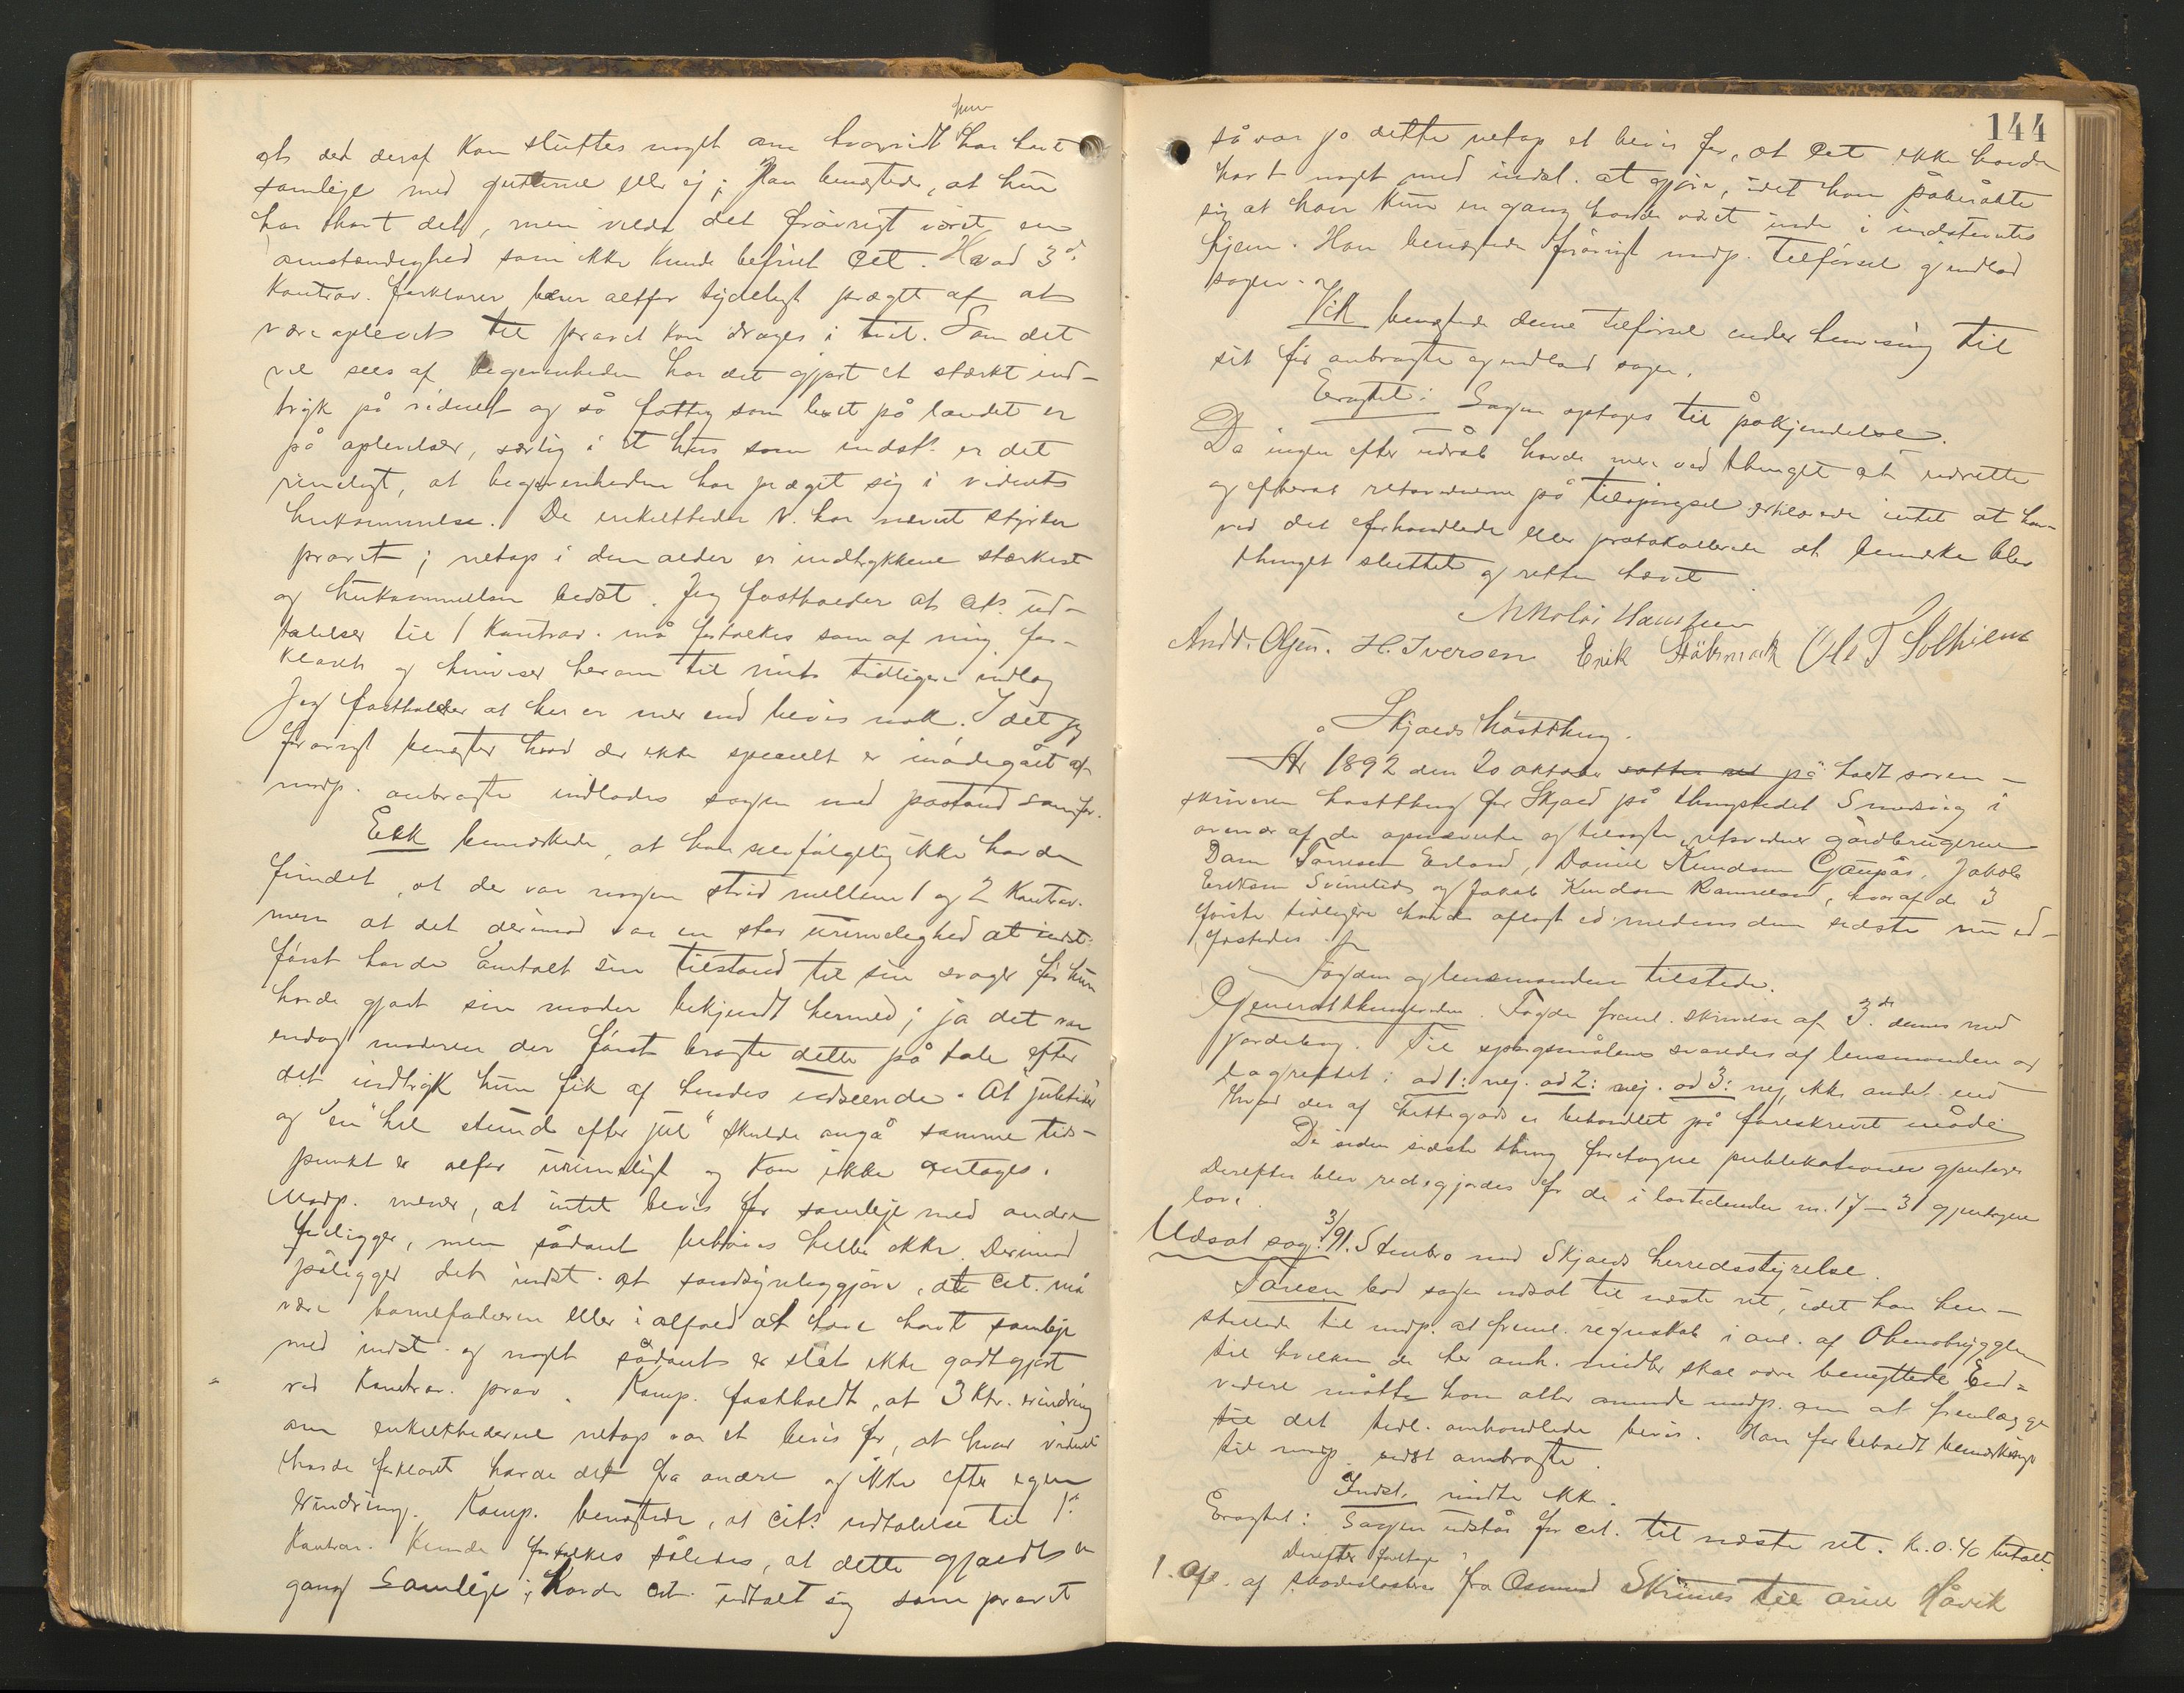 hun
at det deraf kan sluttes noget om hvorvidt har havt
samleje med gutterne eller ej; Han benægtede, at hun
har havt det, men vilde det forøvrigt været en
omstændighed som ikke kunde befriet Cit. Hvad 3d.
Kontrav. forklarer bærer altfor tydeligt præget af at
være oplevet til provet kan drages i tvil. Som det
vil sees af begivenheden har det gjort et stærkt ind-
tryk på vidnet og så fattig som livet på landet er
på oplevelser, særlig i et hus som indst. er det
rimeligt, at begivenheden har præget sig i vidnets
hukommelse. De enkeltheder V. har nævnt styrker
provet; netop i den alder er indtrykkene stærkest
og hukommelsen bedst. Jeg fastholder at Cit. ud-
talelser til 1 Kontrav. må fortolkes som af mig for-
klaret og henviser herom til mit tidligere indlæg
Jeg fastholder at her er mer end bevis nok. Idet jeg
forøvrigt benægter hvad der ikke specielt er imødegået af
modp. anbragte indlades sagen med påstand som før.
Eek bemærkede, at han selvfølgelig ikke havde
fundet, at der var nogen strid mellem 1 og 2 Kontrav.
men at det derimod var en stor urimelighed at indst.
først havde omtalt sin tilstand til sin svoger før hun
havde gjort sin moder bekjendt hermed; ja det var
endog moderen der først bragte dette på tale efter
det indtryk hun fik af hendes udseende. At juletider
og "en hel stund efter jul" skulde angå samme tids-
punkt er altfor urimeligt og kan ikke antages.
Modp. mener, at intet bevis for samleje med andre
foreligger, men sådant behøves heller ikke. Derimod
påligger det indst. at sandsynliggjøre, at Cit. må
være barnefaderen eller i alfald at have havt samleje
med indst. og noget sådant er slet ikke godtgjort
ved Kontrav. prov. Komp. fastholdt, at 3 Ktr. erindring
om enkelthederne netop var et bevis for, at hvad vidnet
havde forklaret havde det fra andre og ikke efter egen
erindring. Komp. benægtede, at Cit. udtalelse til 1ste
Kontrav. kunde fortolkes således, at dette gjældte en
gang samleje; havde Cit. udtalt sig som provet
144
så var jo dette netop et bevis for, at Cit ikke havde
havt noget med indst. at gjøre, idet han påberåbte
sig at han kun en gang havde været inde i indstevntes
hjem. Han benægtede forøvrigt modp. tilførsel og indlod
sagen.
Vik benægtede denne tilførsel under henvisning til
sit før anbragte og indlod sagen.
Eragtet: Sagen optages til påkjendelse.
Da ingen efter udråb havde mere ved thinget at udrette
og efterat retsvidnerne på tilspørgsel erklærede intet at have
ved det forhandlede eller protokollerede at bemærke blev
thinget sluttet og retten hævet
Nikolai Haustein
Andr. Olsen. H. Iversen Erik Stölsmark Ole T Solheim
Skjolds høstthing.
År 1892 den 20 oktober sattes ret på holdt soren-
skriveren høstthing for Skjold på thingstedet Smedsvig i
overvær af de opnævnte og tilsagte retsvidner gårdbrugerne
Daniel Knudsen Gaupås, Jakob
Eriksen Svinelid og Jakob Knudsen Ramsland, hvoraf de 3
første tidligere havde aflagt ed medens den sidste nu ed-
fæstedes.
Fogden og lensmanden tilstede.
Generalthingsvidne. Fogden freml. skrivelse af 3de dennes med
vordelag. Til spørgsmålene svaredes af lensmanden og
lagrettet: ad 1: nej. ad 2: nej. ad 3: nej, ikke andet end
hvad der af hittegods er behandlet på foreskrevet måde
De siden sidste thing foretagne publikationer gjentages
Derefter blev redegjordes for de i lovtidender nr. 17-31 gjentagne
love.
Udsat sag: 3/91. Stenbro mod Skjolds herredsstyrelse.
Sørensen bad sagen udsat til næste ret, idet han hen-
stillede til modp. at freml. regnskab i anl. af
til hvilken de her omh. midler skal være benyttede End-
videre måtte han atter anmode modp. om at fremlægge
til det tidl. omhandlede bevis. Han forbeholdt bemærkninger
til modp. sidst anbragte.
Indst. mødte ikke.
Eragtet: Sagen udstår for Cit. til næste ret. Kr. 0.40 betalt.
Derefter foretoges
1. Afl. af skadesløsbrev fra Osmund Skrines til Arne Håvik